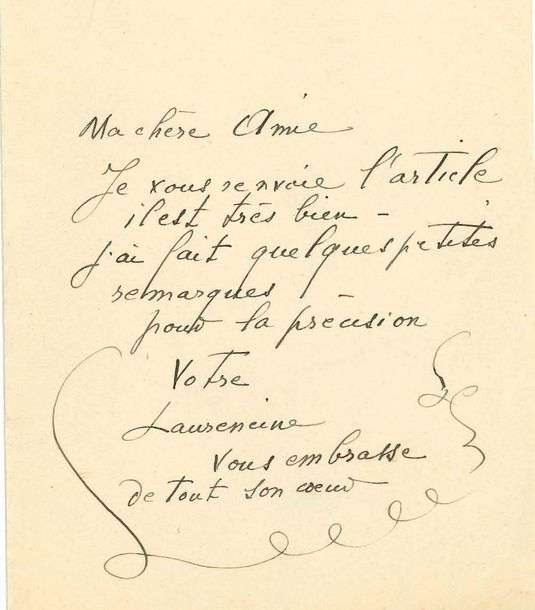 Ma chère Amie
Je vous renvoie l'article
il est très bien -
j'ai fait quelques petites
remarques
pour la précision
Votre
Laurencine
vous embrasse
de tout son cœur